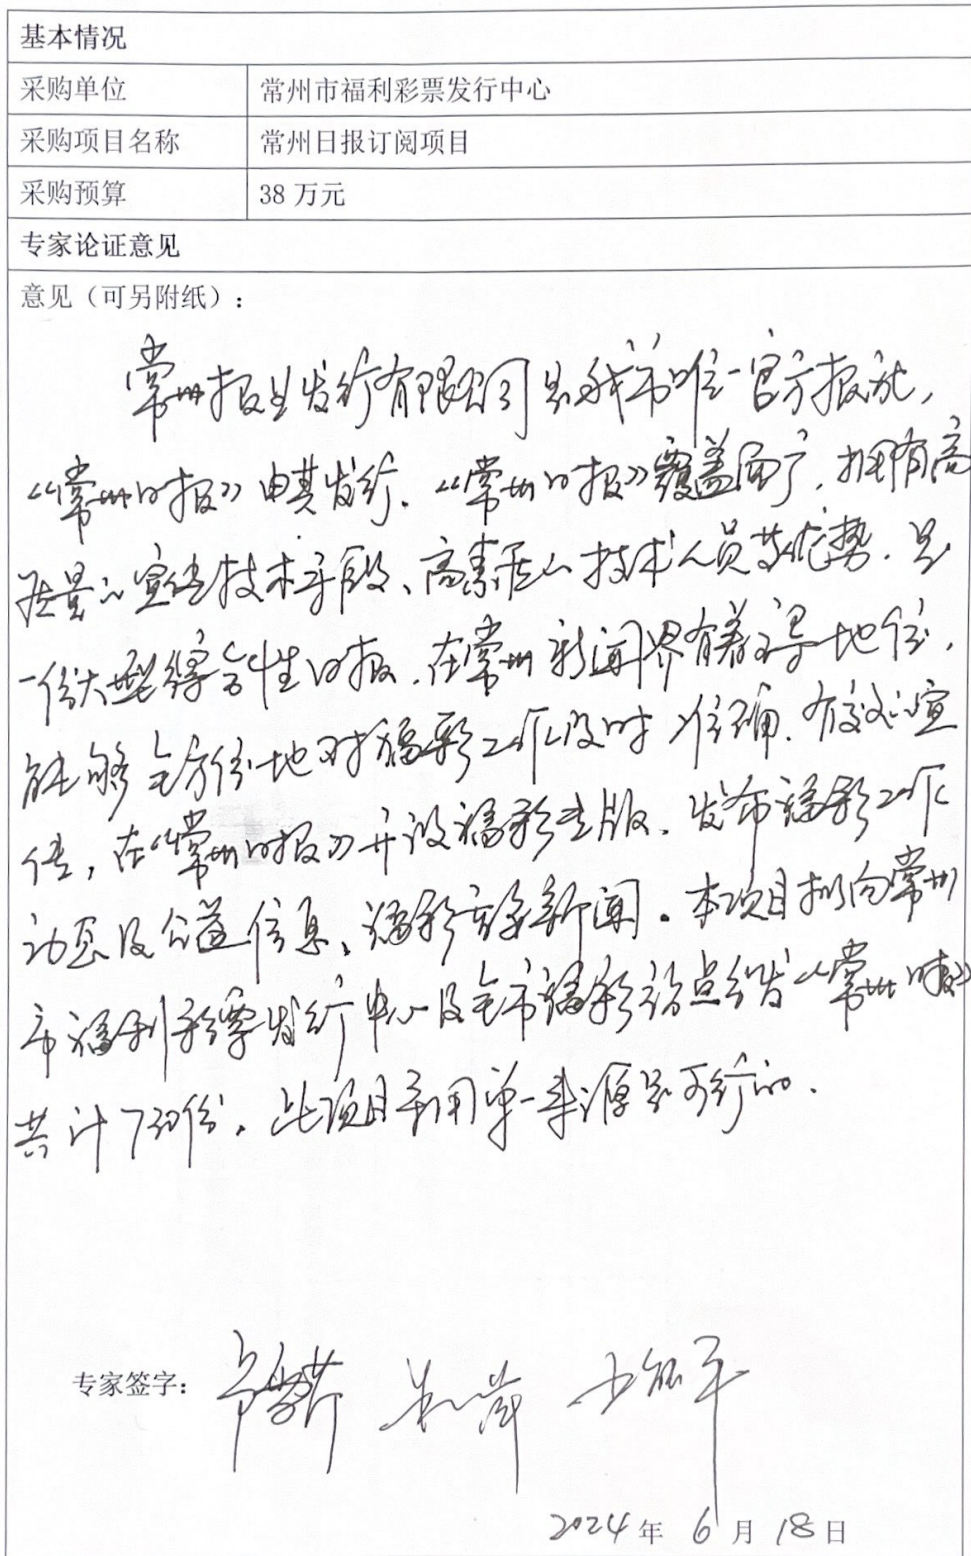 基本情况
采购单位 常州市福利彩票发行中心
采购项目名称 常州日报订阅项目
采购预算 38 万元
专家论证意见
意见（可另附纸）：
常州报业发行有限公司是我市唯一官方报社，
《常州日报》由其发行.《常州日报》覆盖面广，拥有高
质量的宣传技术手段、高素质的技术人员等优势.是
一份大型综合性日报.在常州新闻界有着主导地位，
能够全方位地对福彩工作及时、准确、有效地宣
传，在《常州日报》开设福彩专版.发布福彩工作
动态及公益信息、福彩新闻.本项目拟向常州
市福利彩票发行中心及全市福彩站点分发《常州日报》
共计730份.此项目采用单一来源是可行的.
专家签字：
2024年 6月 18日